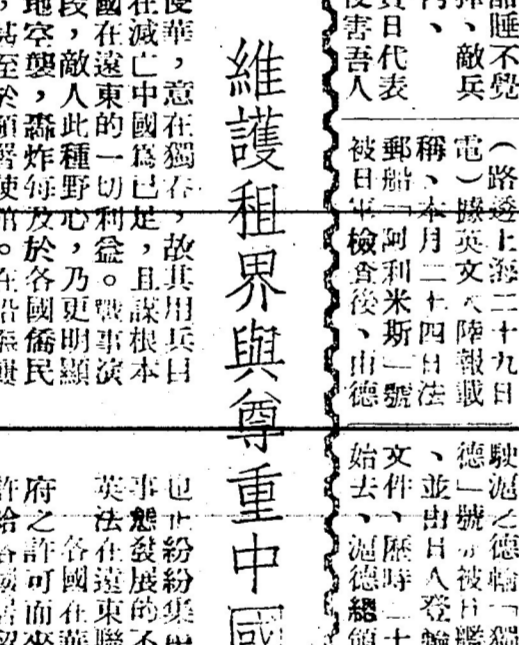 不覺
、敵兵
日代表
害吾人
(路透上海二十九日
電)據英文大陸報載
稱、本月二十四日法
郵船「阿利米斯」號
被日軍檢查後、由德
駛滬之德輪「獨
德」號亦被日艦
、並由日人登輪
文件、歷時二十
始去、滬德總領
維護租界與尊重中國
華,意在獨吞,故其用兵目
在滅亡中國為已足,且謀根本
國在遠東的一切利益。戰事演
段,敵人此種野心,乃更明顯
地空襲,轟炸每及於各國僑民
也正紛紛集
事態發展的不
英法在遠東聯
各國在華
府之許可而來